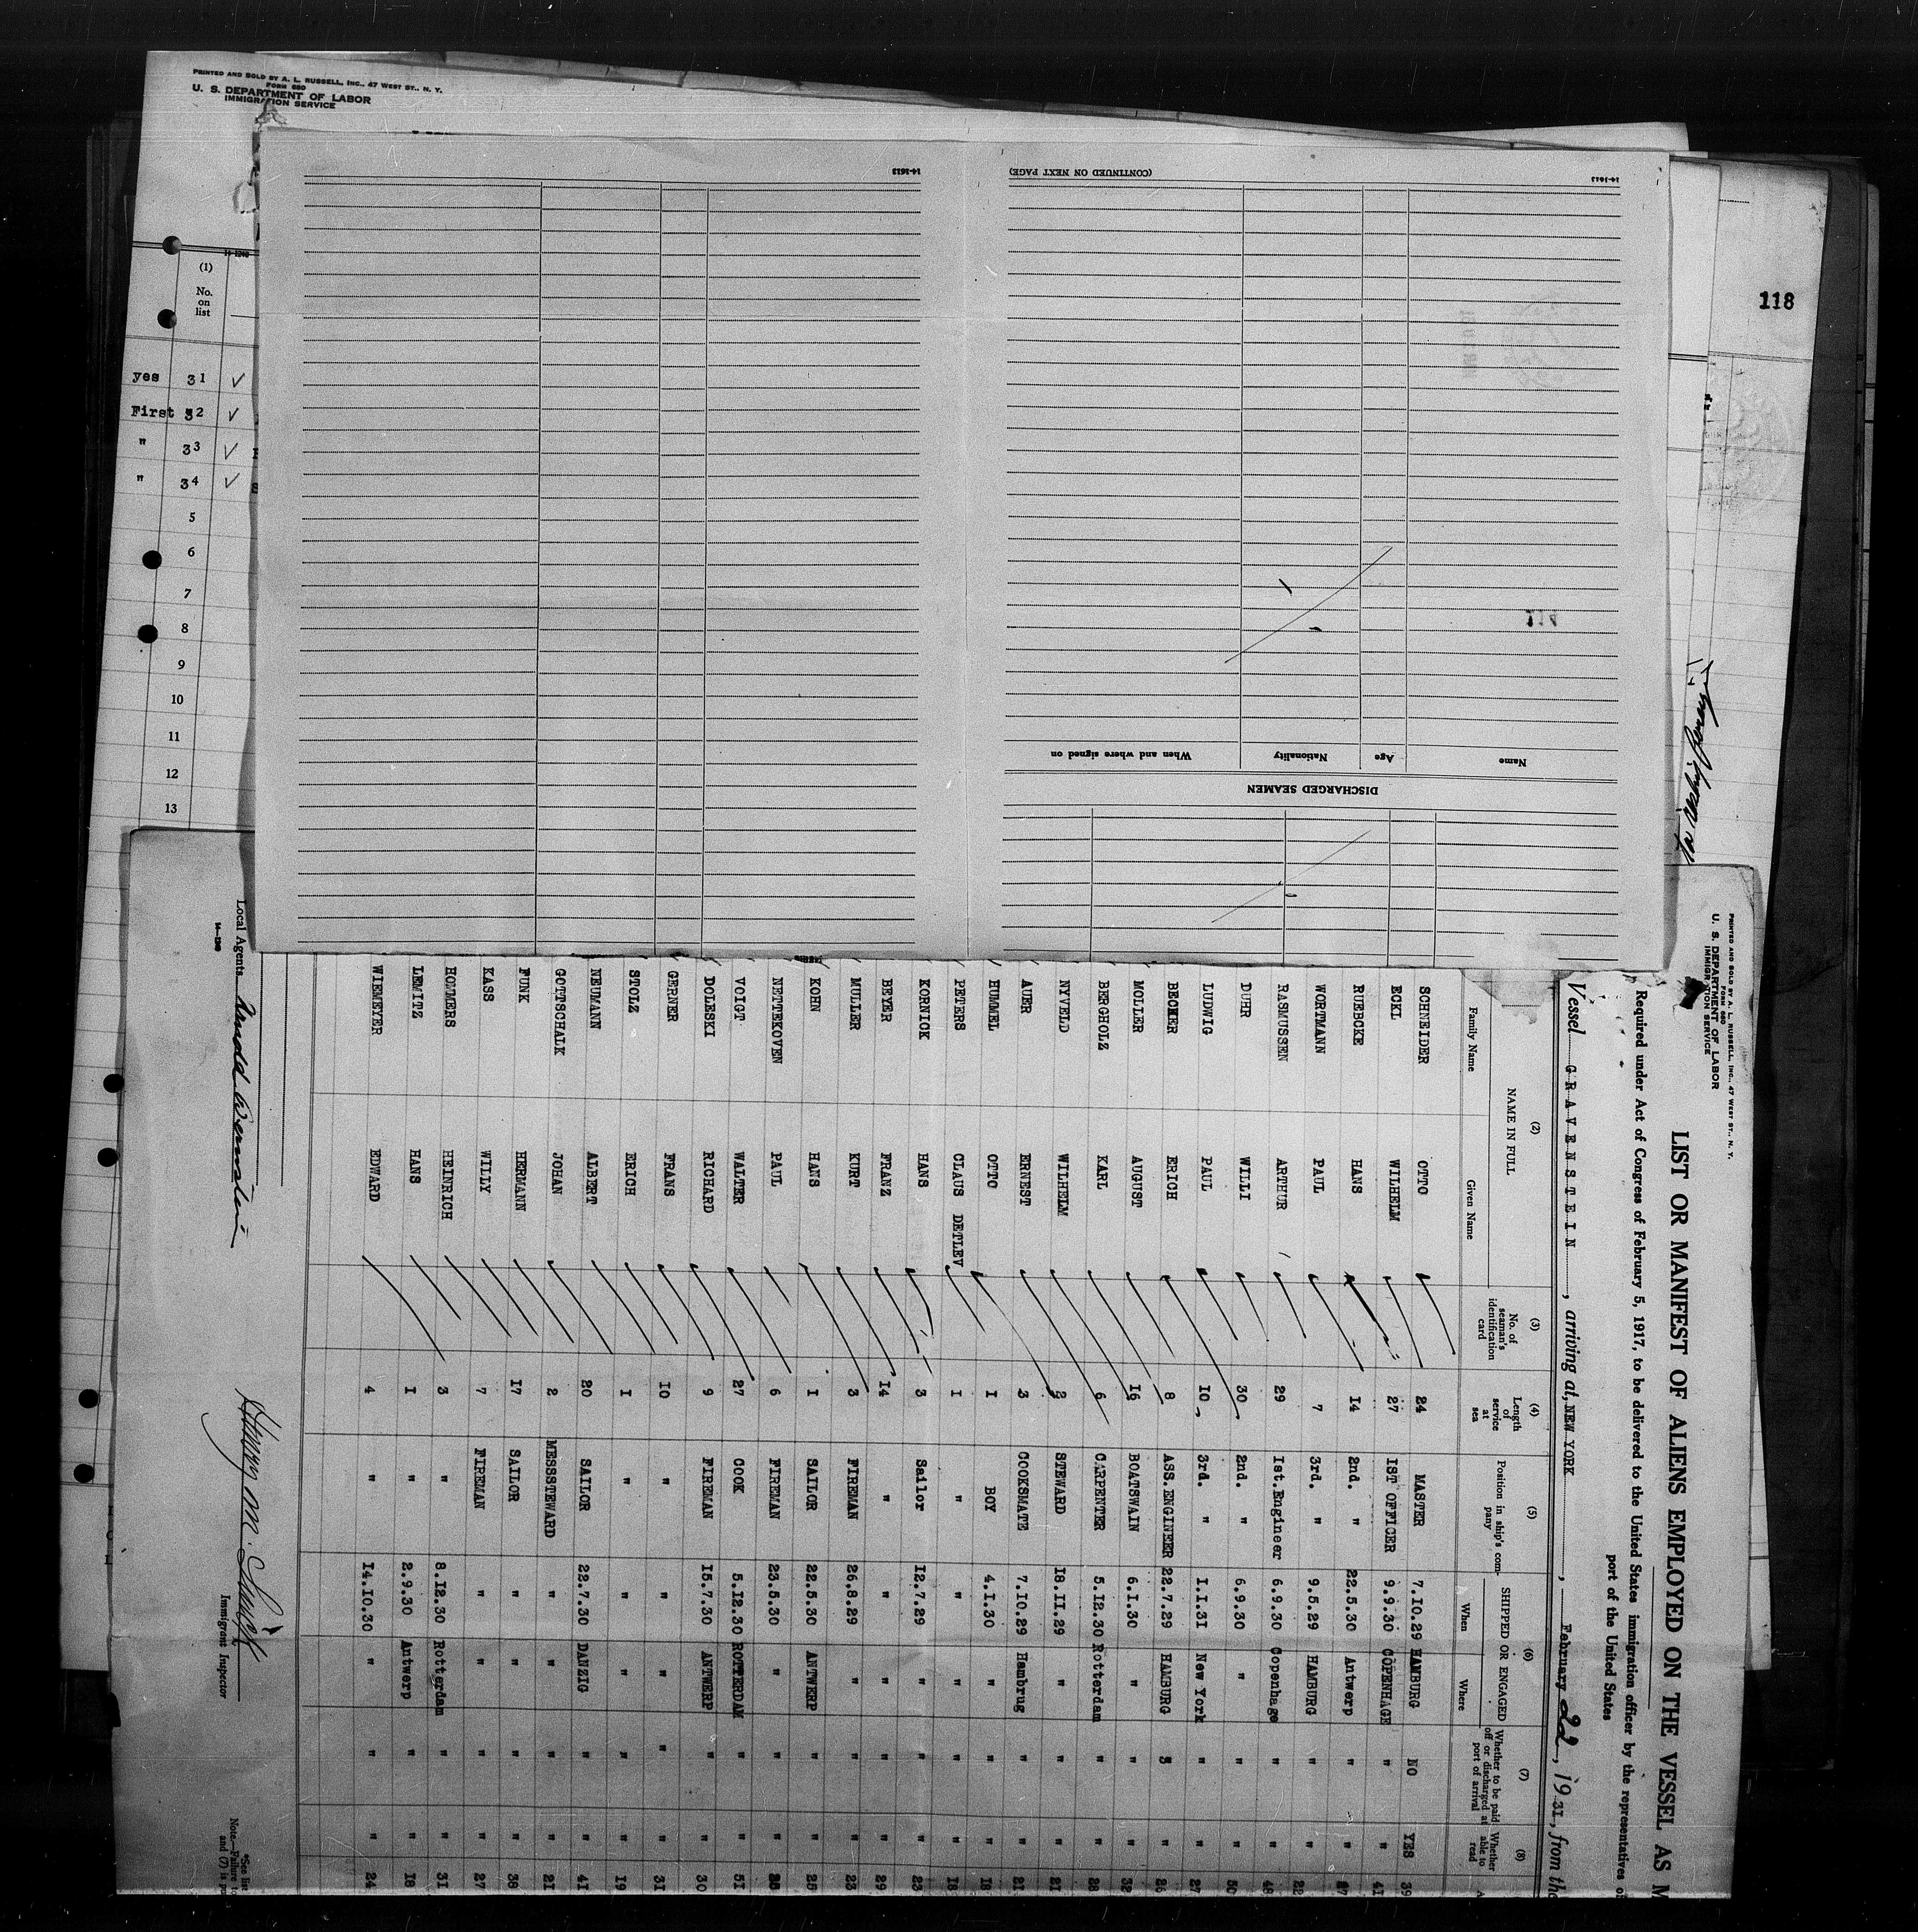 PRINTED AND SOLD BY A. L. RUSSELL, INC., 47 WEST ST., N. Y.
FORM 680
U. S. DEPARTMENT OF LABOR
IMMIGRATION SERVICE
14-1240
(1)
No.
on
list
yes 31 ✓
First 32 ✓
" 33 ✓
" 34 ✓
5
6
7
8
9
10
11
12
13
118
14-1613
(CONTINUED ON NEXT PAGE)
14-1613
DISCHARGED SEAMEN
Name Age Nationality When and where signed on
PRINTED AND SOLD BY A. L. RUSSELL, INC., 47 WEST ST., N. Y.
FORM 680
U. S. DEPARTMENT OF LABOR
IMMIGRATION SERVICE
LIST OR MANIFEST OF ALIENS EMPLOYED ON THE VESSEL AS M
Required under Act of Congress of February 5, 1917, to be delivered to the United States immigration officer by the representatives of
port of the United States
Vessel GRAVENSTEIN, arriving at NEW YORK, February 22, 1931, from the
(2) (3) (4) (5) (6) (7) (8)
NAME IN FULL No. of seaman's identification card Length of service at sea Position in ship's company SHIPPED OR ENGAGED Whether to be paid off or discharged at port of arrival Whether able to read
Family Name Given Name When Where
SCHNEIDER OTTO 24 MASTER 7.10.29 HAMBURG NO YES 39
ECKL WILHELM 27 IST OFFICER 9.9.30 COPENHAGE " " 41
RUEBCKE HANS 14 2nd. " 22.5.30 Antwerp " " 27
WORTMANN PAUL 7 3rd. " 9.5.29 HAMBURG " " 22
RASMUSSEN ARTHUR 29 Ist.Engineer 6.9.30 Copenhage " " 48
DUHR WILLI 30 2nd. " 6.9.30 " " " 50
LUDWIG PAUL 10 3rd. " I.I.3I New York " " 27
BECKER ERICH 8 ASS.ENGINEER 22.7.29 HAMBURG " " 26
MOLLER AUGUST 16 BOATSWAIN 6.I.30 " " " 32
BERGHOLZ KARL 6 CARPENTER 5.12.30 Rotterdam " " 28
NYVELD WILHELM 2 STEWARD 18.II.29 " " " 2I
AUER ERNEST 3 COOKSMATE 7.10.29 Hambrug " " 2I
HUMMEL OTTO I BOY 4.I.30 " " " 18
PETERS CLAUS DETLEV I " " " " " 18
KORNICK HANS 3 Sailor 12.7.29 " " " 23
BEYER FRANZ 14 " " " " 29
MULLER KURT 3 FIREMAN 26.8.29 " " " 23
KOHN HANS I SAILOR 22.5.30 ANTWERP " " 25
NETTEKOVEN PAUL 6 FIREMAN 23.5.30 " " "
VOIGT WALTER 27 COOK 5.12.30 ROTTERDAM " " 5I
DOLESKI RICHARD 9 FIREMAN 15.7.30 ANTWERP " " 30
GERNER FRANS 10 " " " " " 3I
STOLZ ERICH I " " " " " 19
NEUMANN ALBERT 20 SAILOR 22.7.30 DANZIG " " 4I
GOTTSCHALK JOHAN 2 MESSSTEWARD " " " " 2I
FUNK HERMANN 17 SAILOR " " " " 38
KASS WILLY 7 FIREMAN " " " " 27
HOMMERS HEINRICH 3 " 8.12.30 Rotterdam " " 3I
LEMITZ HANS I " 2.9.30 Antwerp " " 18
WIEMEYER EDWARD 4 " 14.10.30 " " " 24
Local Agents
14-1240
Harry M.
Immigrant Inspector
*See list
Note.—Failure to
and (7) is pu